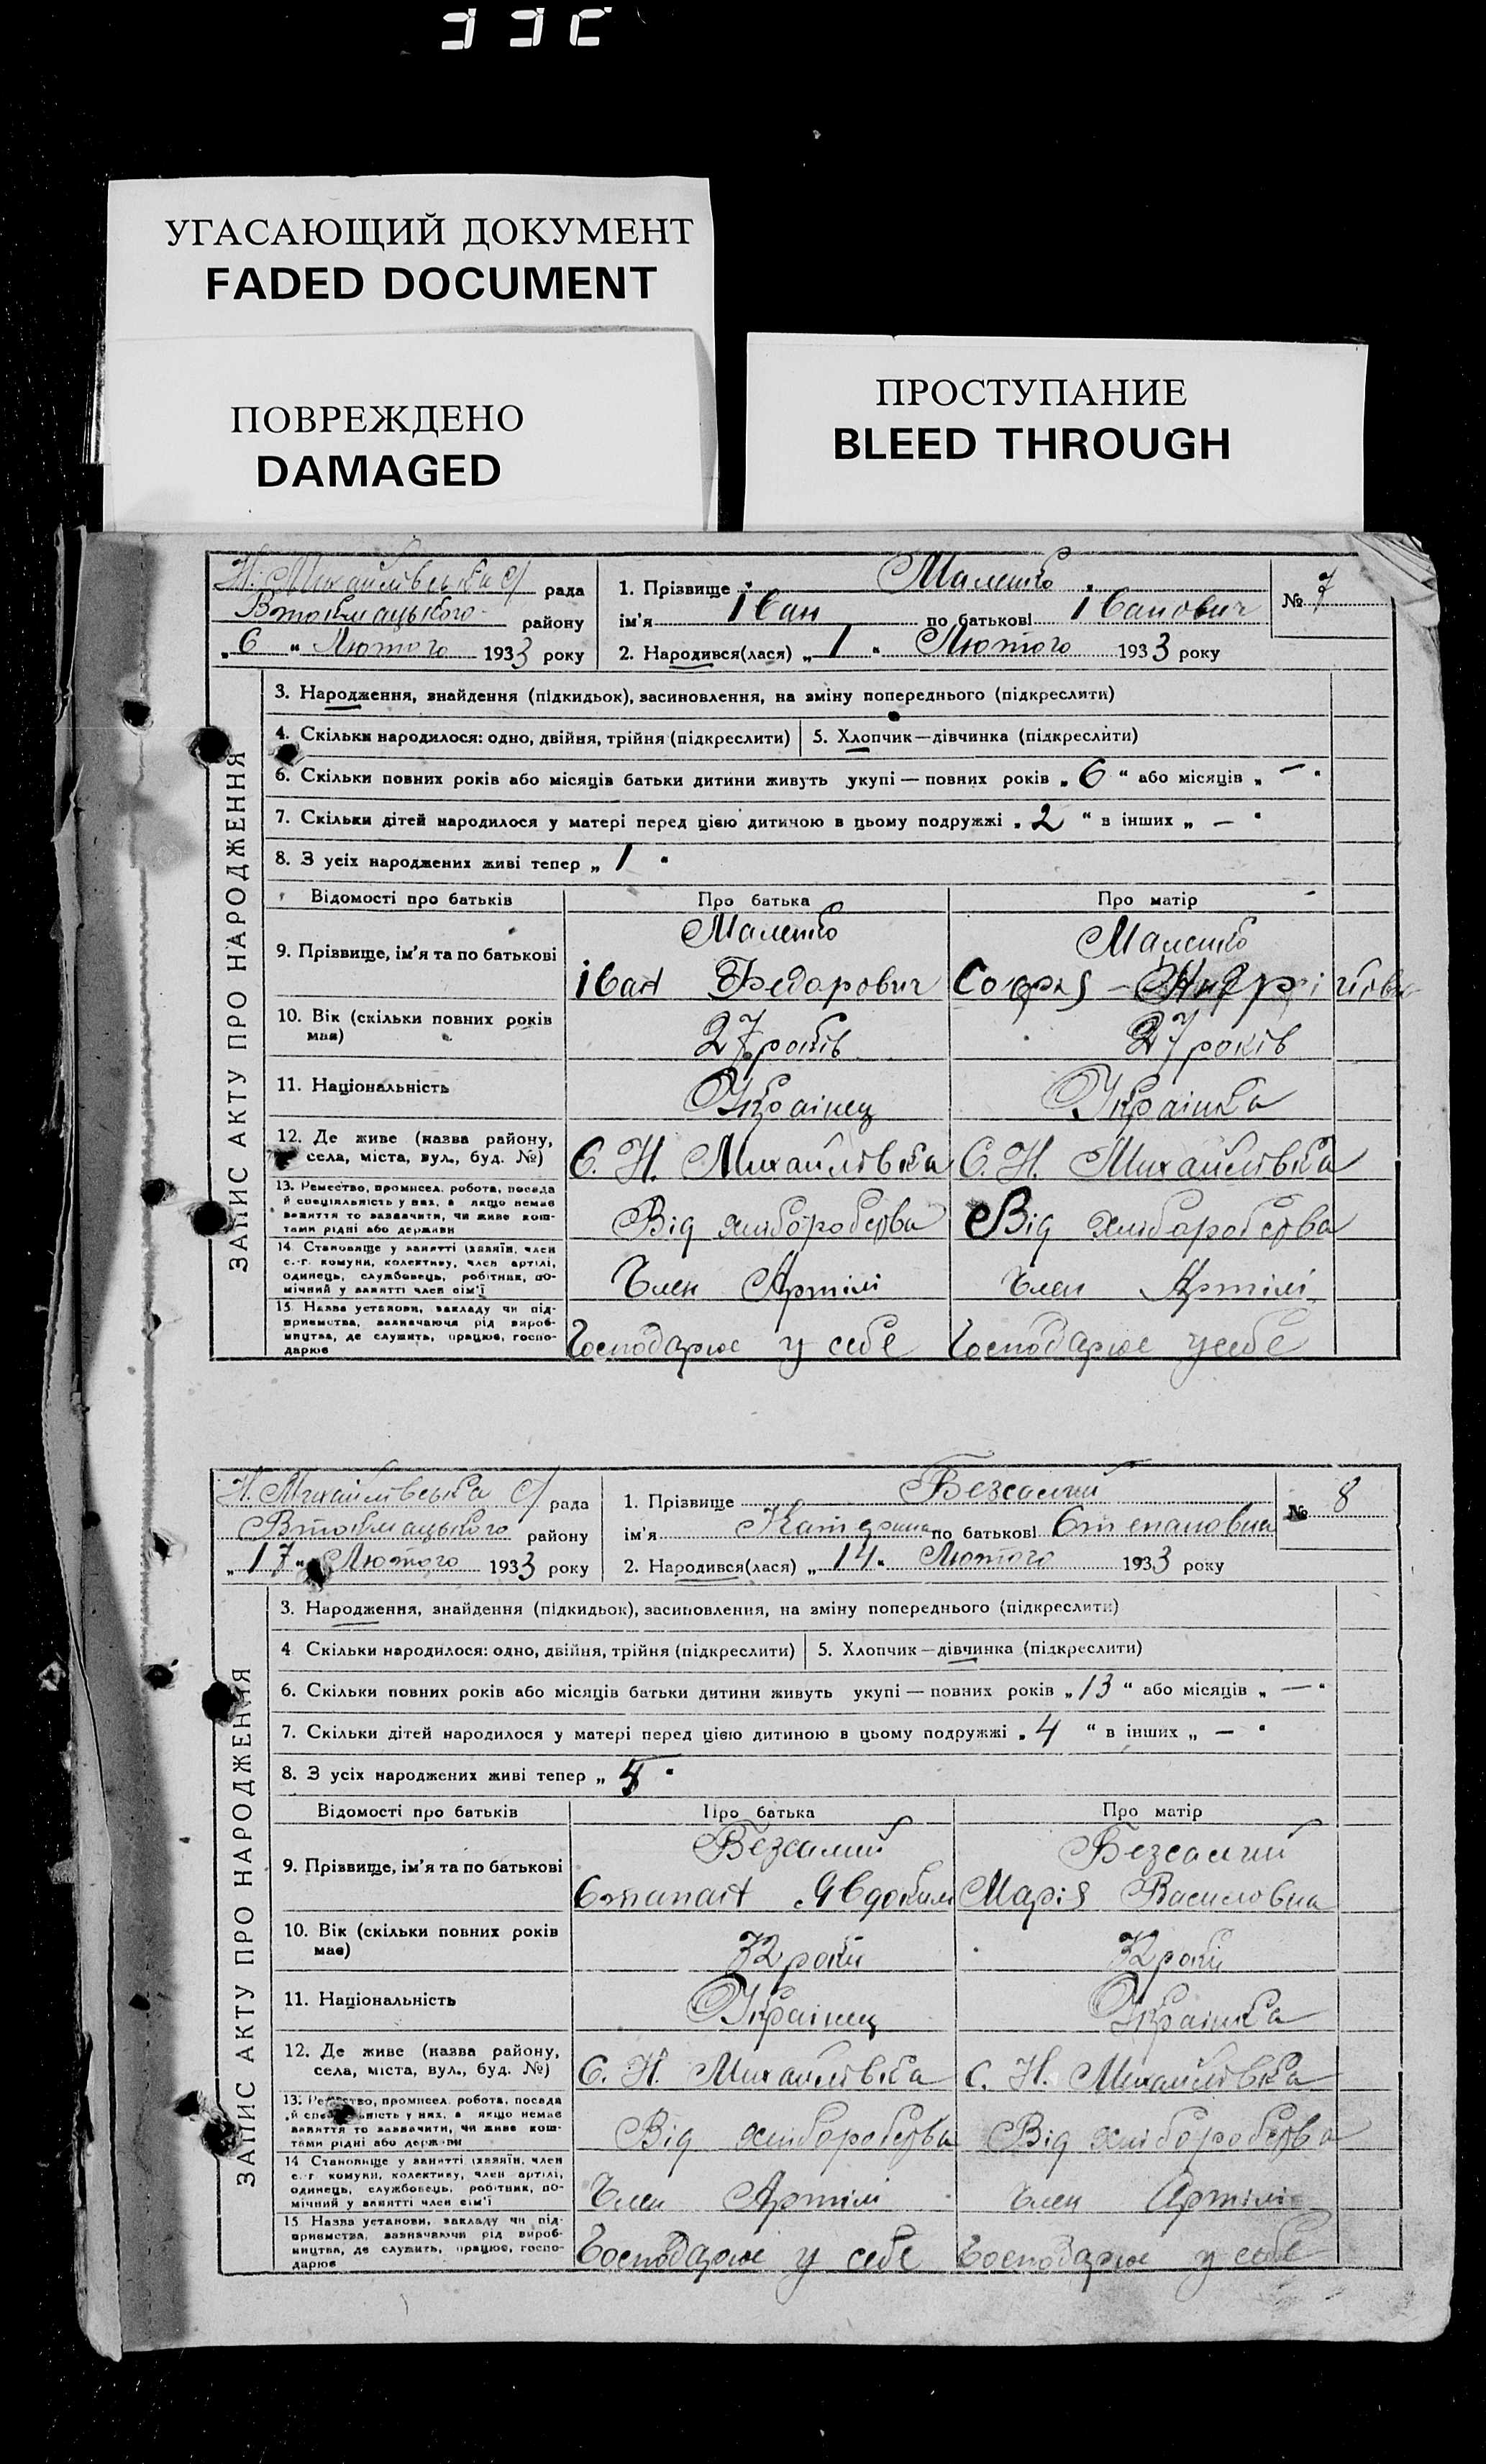 УГАСАЮЩИЙ ДОКУМЕНТ
FADED DOCUMENT
ПОВРЕЖДЕНО
DAMAGED
ПРОСТУПАНИЕ
BLEED THROUGH
Н. Михайлівська с/ рада
Втокмацького району
„6“ Лютого 1933 року
1. Прізвище Малешко
ім'я Іван по батькові Іванович
2. Народився(лася) „1“ Лютого 1933 року
№ 7
ЗАПИС АКТУ ПРО НАРОДЖЕННЯ
3. Народження, знайдення (підкидьок), засиновлення, на зміну попереднього (підкреслити)
4. Скільки народилося: одно, двійня, трійня (підкреслити) 5. Хлопчик—дівчинка (підкреслити)
6. Скільки повних років або місяців батьки дитини живуть укупі — повних років „6“ або місяців „—“
7. Скільки дітей народилося у матері перед цією дитиною в цьому подружжі „2“ в інших „—“
8. З усіх народжених живі тепер „1“
Відомості про батьків Про батька Про матір
9. Прізвище, ім'я та по батькові
Малешко Малешко
Іван Федорович Софія
10. Вік (скільки повних років має)
27 років 27 років
11. Національність
Українец Українка
12. Де живе (назва району, села, міста, вул., буд. №)
С. Н. Михайлівка С. Н. Михайлівка
13. Ремество, промисел, робота, посада й спеціяльність у них, а якщо немає заняття то зазначити, чи живе коштами рідні або держави
Від хліборобства Від хліборобства
14. Становище у занятті (хазяїн, член с.-г. комуни, колективу, член артілі, одинець, службовець, робітник, помічний у занятті член сім'ї
Член Артілі Член Артілі
15. Назва установи, закладу чи підприємства, зазначаючи рід виробництва, де служить, працює, господарює
Господарює у себе Господарює у себе
Н. Михайлівська с/ рада
Втокмацького району
„17“ Лютого 1933 року
1. Прізвище Безсалий
ім'я Катерина по батькові Степановна
2. Народився(лася) „14“ Лютого 1933 року
№ 8
ЗАПИС АКТУ ПРО НАРОДЖЕННЯ
3. Народження, знайдення (підкидьок), засиновлення, на зміну попереднього (підкреслити)
4 Скільки народилося: одно, двійня, трійня (підкреслити) 5. Хлопчик—дівчинка (підкреслити)
6. Скільки повних років або місяців батьки дитини живуть укупі — повних років „13“ або місяців „—“
7. Скільки дітей народилося у матері перед цією дитиною в цьому подружжі „4“ в інших „—“
8. З усіх народжених живі тепер „5“
Відомості про батьків Про батька Про матір
9. Прізвище, ім'я та по батькові
Безсалий Безсалий
Степан Явдоким Марія Василовна
10. Вік (скільки повних років має)
32 роки 32 роки
11. Національність
Українец Українка
12. Де живе (назва району, села, міста, вул., буд. №)
С. Н. Михайлівка С. Н. Михайлівка
13. Ремество, промисел, робота, посада й спеціяльність у них, а якщо немає заняття то зазначити, чи живе коштами рідні або держави
Від хліборобства Від хліборобства
14 Становище у занятті (хазяїн, член с.-г комуни, колективу, член артілі, одинець, службовець, робітник, помічний у занятті член сім'ї
Член Артілі Член Артілі
15 Назва установи, закладу чи підприємства, зазначаючи рід виробництва, де служить, працює, господарює
Господарює у себе Господарює у себе